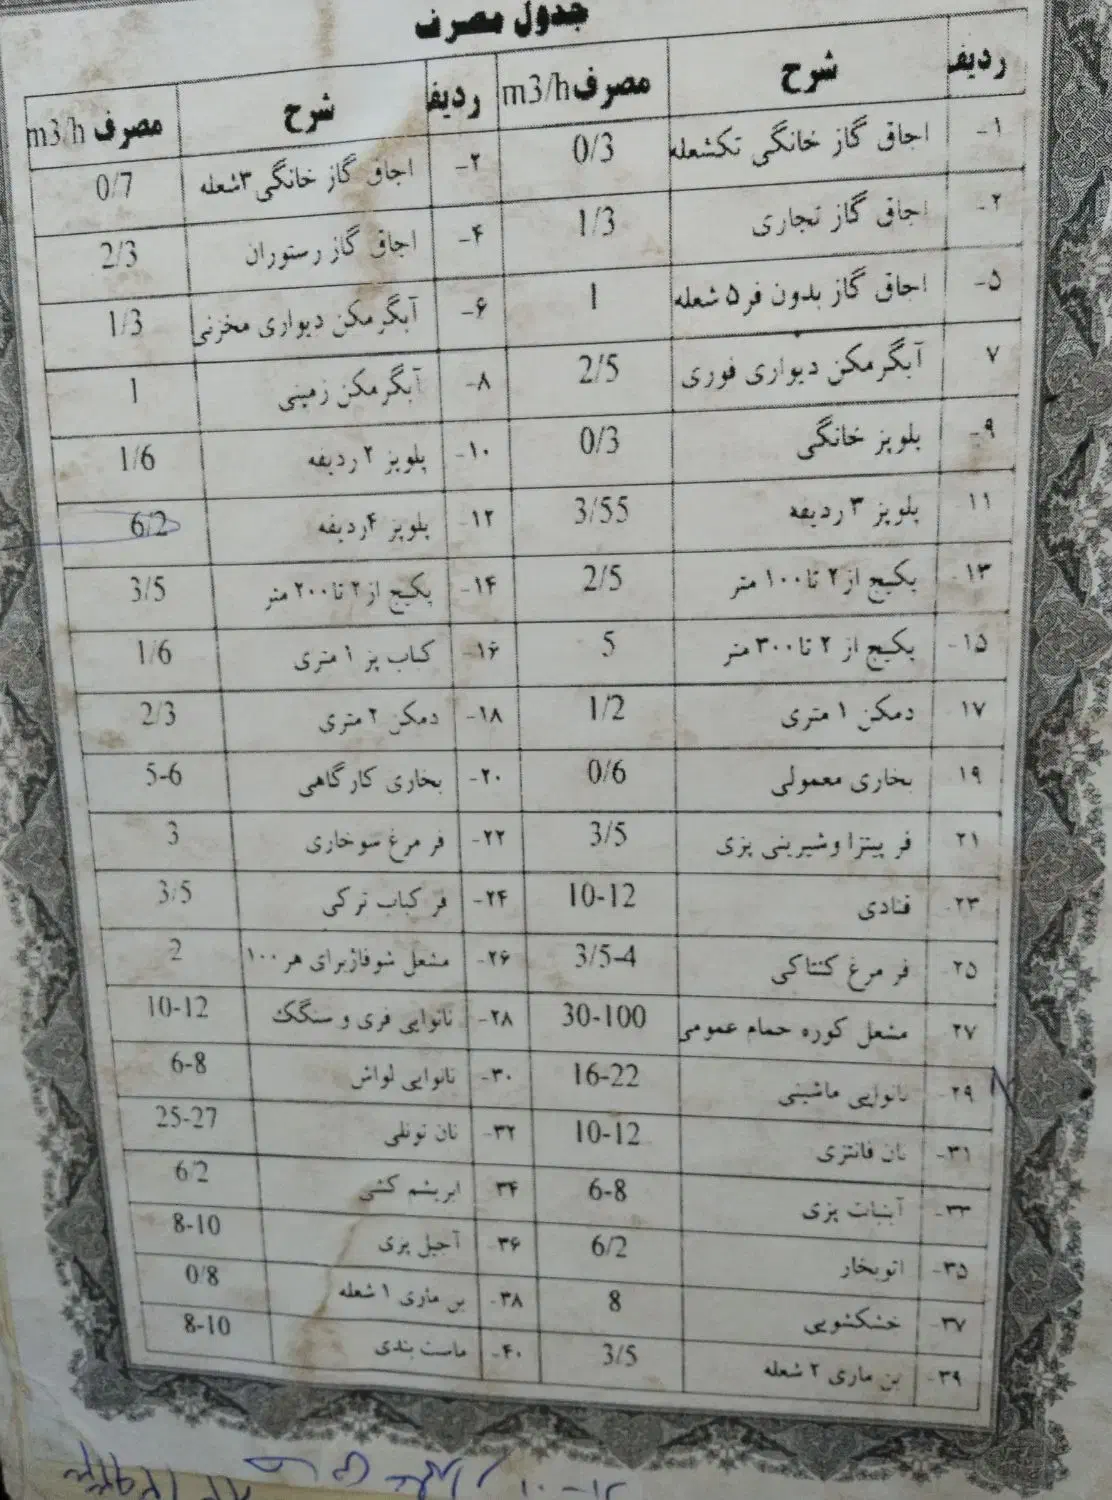 جدول مصرف
ردیف شرح مصرف m3/h ردیف شرح مصرف m3/h
۱- اجاق گاز خانگی تکشعله 0/3 ۲- اجاق گاز خانگی ۳شعله 0/7
۲- اجاق گاز تجاری 1/3 ۴- اجاق گاز رستوران 2/3
۵- اجاق گاز بدون فر ۵ شعله 1 ۶- آبگرمکن دیواری مخزنی 1/3
۷ آبگرمکن دیواری فوری 2/5 ۸- آبگرمکن زمینی 1
۹- پلوپز خانگی 0/3 ۱۰- پلوپز ۲ ردیفه 1/6
۱۱ پلوپز ۳ ردیفه 3/55 ۱۲- پلوپز ۴ردیفه 6/2
۱۳- پکیج از ۲ تا ۱۰۰ متر 2/5 ۱۴- پکیج از ۲ تا ۲۰۰ متر 3/5
۱۵- پکیج از ۲ تا ۳۰۰ متر 5 ۱۶- کباب پز ۱ متری 1/6
۱۷ دمکن ۱ متری 1/2 ۱۸- دمکن ۲ متری 2/3
۱۹ بخاری معمولی 0/6 ۲۰- بخاری کارگاهی 5-6
۲۱ فر پیتزا وشیرینی پزی 3/5 ۲۲- فر مرغ سوخاری 3
۲۳- قنادی 10-12 ۲۴- فر کباب ترکی 3/5
۲۵ فر مرغ کنتاکی 3/5-4 ۲۶- مشعل شوفاژبرای هر ۱۰۰ 2
۲۷ مشعل کوره حمام عمومی 30-100 ۲۸- نانوایی فری و سنگک 10-12
۲۹- نانوایی ماشینی 16-22 ۳۰- نانوایی لواش 6-8
۳۱- نان فانتزی 10-12 ۳۲- نان تونلی 25-27
۳۳- آبنبات پزی 6-8 ۳۴ ابریشم کشی 6/2
۳۵- اتوبخار 6/2 ۳۶- آجیل پزی 8-10
۳۷- خشکشویی 8 ۳۸- بن ماری ۱ شعله 0/8
۳۹- بن ماری ۲ شعله 3/5 ۴۰- ماست بندی 8-10
۱۰-۱۲